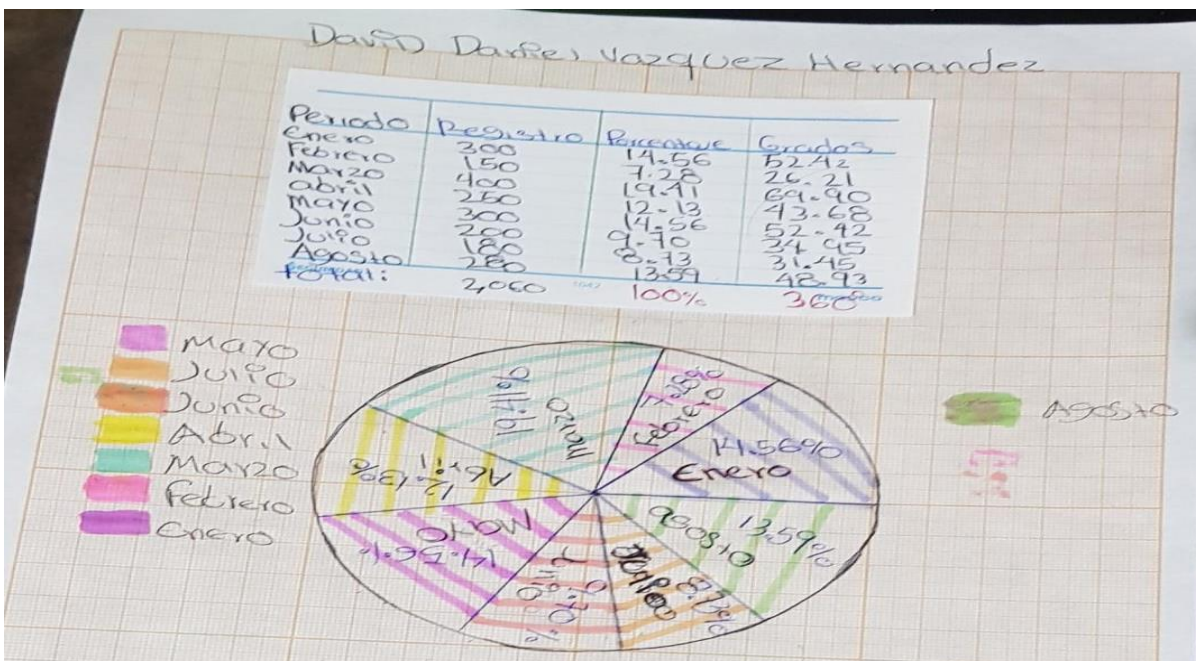 David Daniel Vazquez Hernandez
Periodo Registro Porcentaje Grados
Enero 300 14.56 52.42
Febrero 150 7.28 26.21
Marzo 400 19.41 69.90
abril 250 12.13 43.68
Mayo 300 14.56 52.42
Junio 200 9.70 34.95
Julio 180 8.73 31.45
Agosto 280 13.59 48.93
total: 2,060 100% 360°
Mayo
Julio
Junio
Abril
Marzo
Febrero
Enero
Agosto
19.41%
Marzo
7.28%
Febrero
14.56%
Enero
Abril
12.13%
Mayo
14.56%
9.70%
8.73%
13.59%
agosto